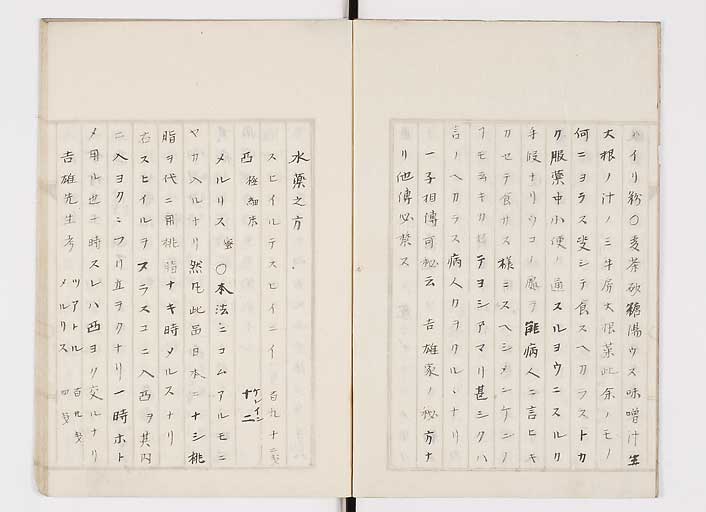 イリ粉〇麦茶砂糖湯ウス味噌汁生
大根ノ汁ノ三牛房大根菜此余ノモノ
何ニヨラス堅シテ食スヘカラストカ
ク服薬中小便ノ通スルヨウニスルク
手段ナリウコノ服ヲ能病人ニ言ヒキ
カセテ食サス様ニスヘシメンケンノ
フモヲキカ テヨシアマリ甚シクハ
言ノヘカラス病人クヲクルヽナリ
一子相傳可秘云 吉雄家ノ秘方ナ
リ他傳必禁ス
水薬之方
スヒイルテスヒイニイ 百九十二戔
西 極細末 ケレイン 十二
メルリス 蜜 〇本法ニコムアルモニ
ヤカ入ルナリ然凡此品日本ニナシ桃
脂ヲ代ニ用桃脂ナキ時メルスナリ
右スヒイルヲヌラスコニ入西ヲ其内
ニ入ヨクニフリ立ヲクナリ一時ホト
メ用ル也十時スレハ西ヨク交ルナリ
吉雄先生考 ツアトル 百九戔
メルリス 四戔